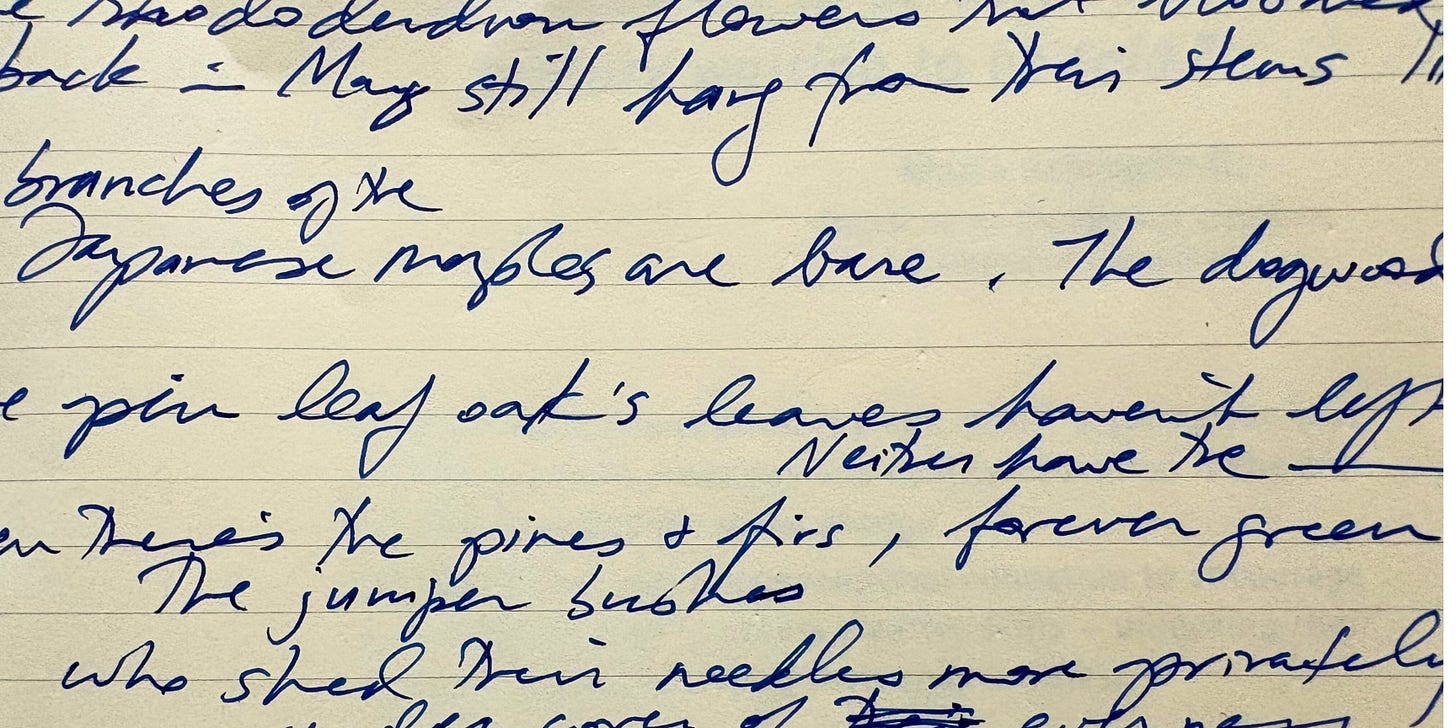 rhododendron flowers that bloomed
back in May still hang from their stems
branches of the
Japanese maples are bare. The dogwood
pin leaf oak's leaves haven't left
Neither have the ___
there's the pines & firs, forever green
The juniper bushes
who shed their needles more privately
under cover of